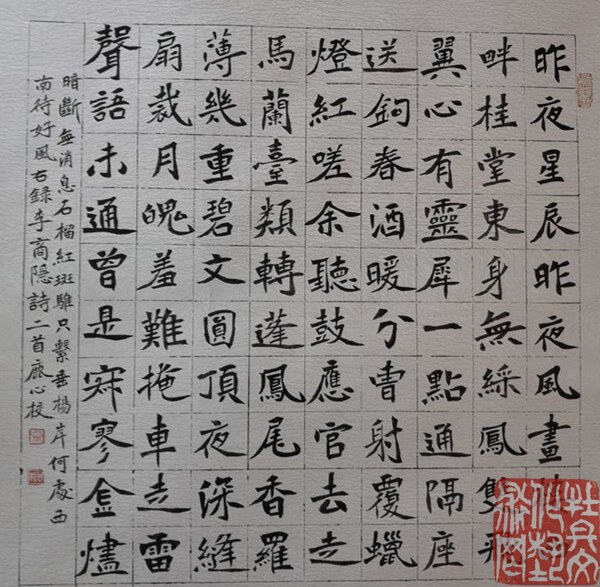 昨夜星辰昨夜風畫
畔桂堂東身無綵鳳雙飛
翼心有靈犀一點通隔座
送鉤春酒暖分曹射覆蠟
燈紅嗟余聽鼓應官去走
馬蘭臺類轉蓬鳳尾香羅
薄幾重碧文圓頂夜深縫
扇裁月魄羞難掩車走雷
聲語未通曾是寂寥金燼
暗斷無消息石榴紅斑騅只繫垂楊岸何處西
南待好風右錄李商隱詩二首心校